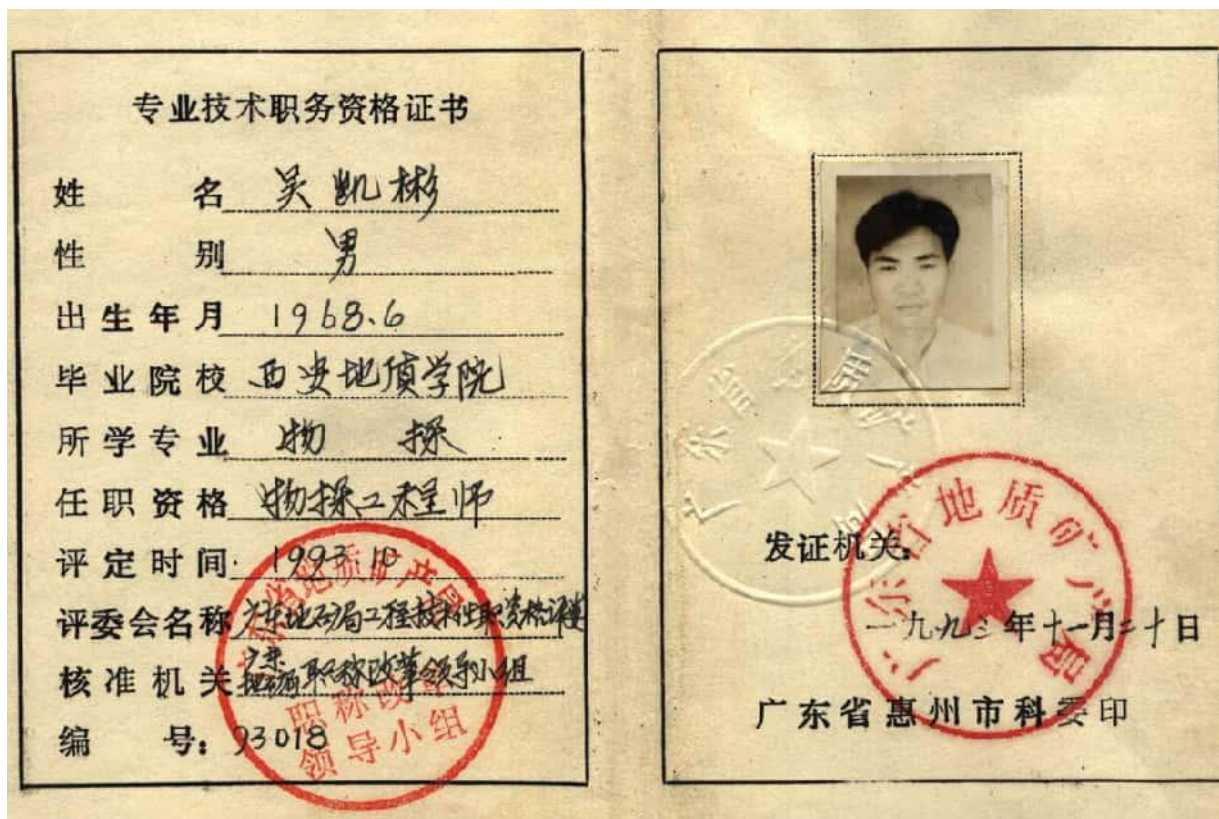 专业技术职务资格证书
姓名 吴凯彬
性别 男
出生年月 1968.6
毕业院校 西安地质学院
所学专业 物探
任职资格 物探工程师
评定时间: 1993.10
评委会名称 广东地矿局工程技术
核准机关 职称改革领导小组
编号: 93018
职称改革
领导小组
广东省地质矿产局
发证机关:
一九九三年十一月二十日
广东省惠州市科委印